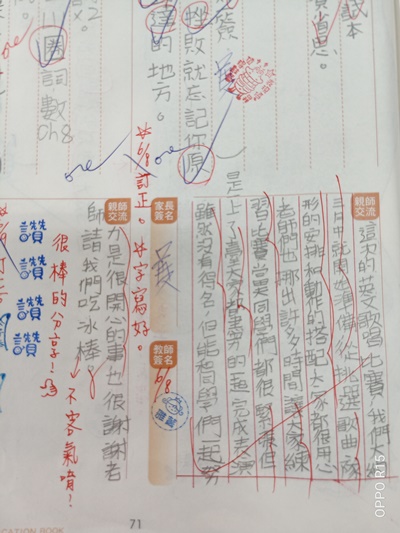 本
消息。
挫敗就忘記你原
的地方。
圈詞數
ore
ore
ore
親師交流
這次的英 比賽,我們
三月中就開始準備,從挑選歌曲、隊
形的安排和動作的搭配,大家都很用心
老師們也挪出許多時間讓大家練
習,比賽當天同學們都很緊張,但
是上了臺大家都盡力的一起完成表演
雖然沒有得名,但能和同學們一起努
家長簽名
教師簽名
6/8
※6/8訂正。※字寫好。
親師交流
力是很開心的事,也很謝謝老
師請我們吃冰棒。
不客氣唷!
很棒的分享!
讚讚
讚讚
讚讚
讚讚
71
CATION BOOK
OPPO R15